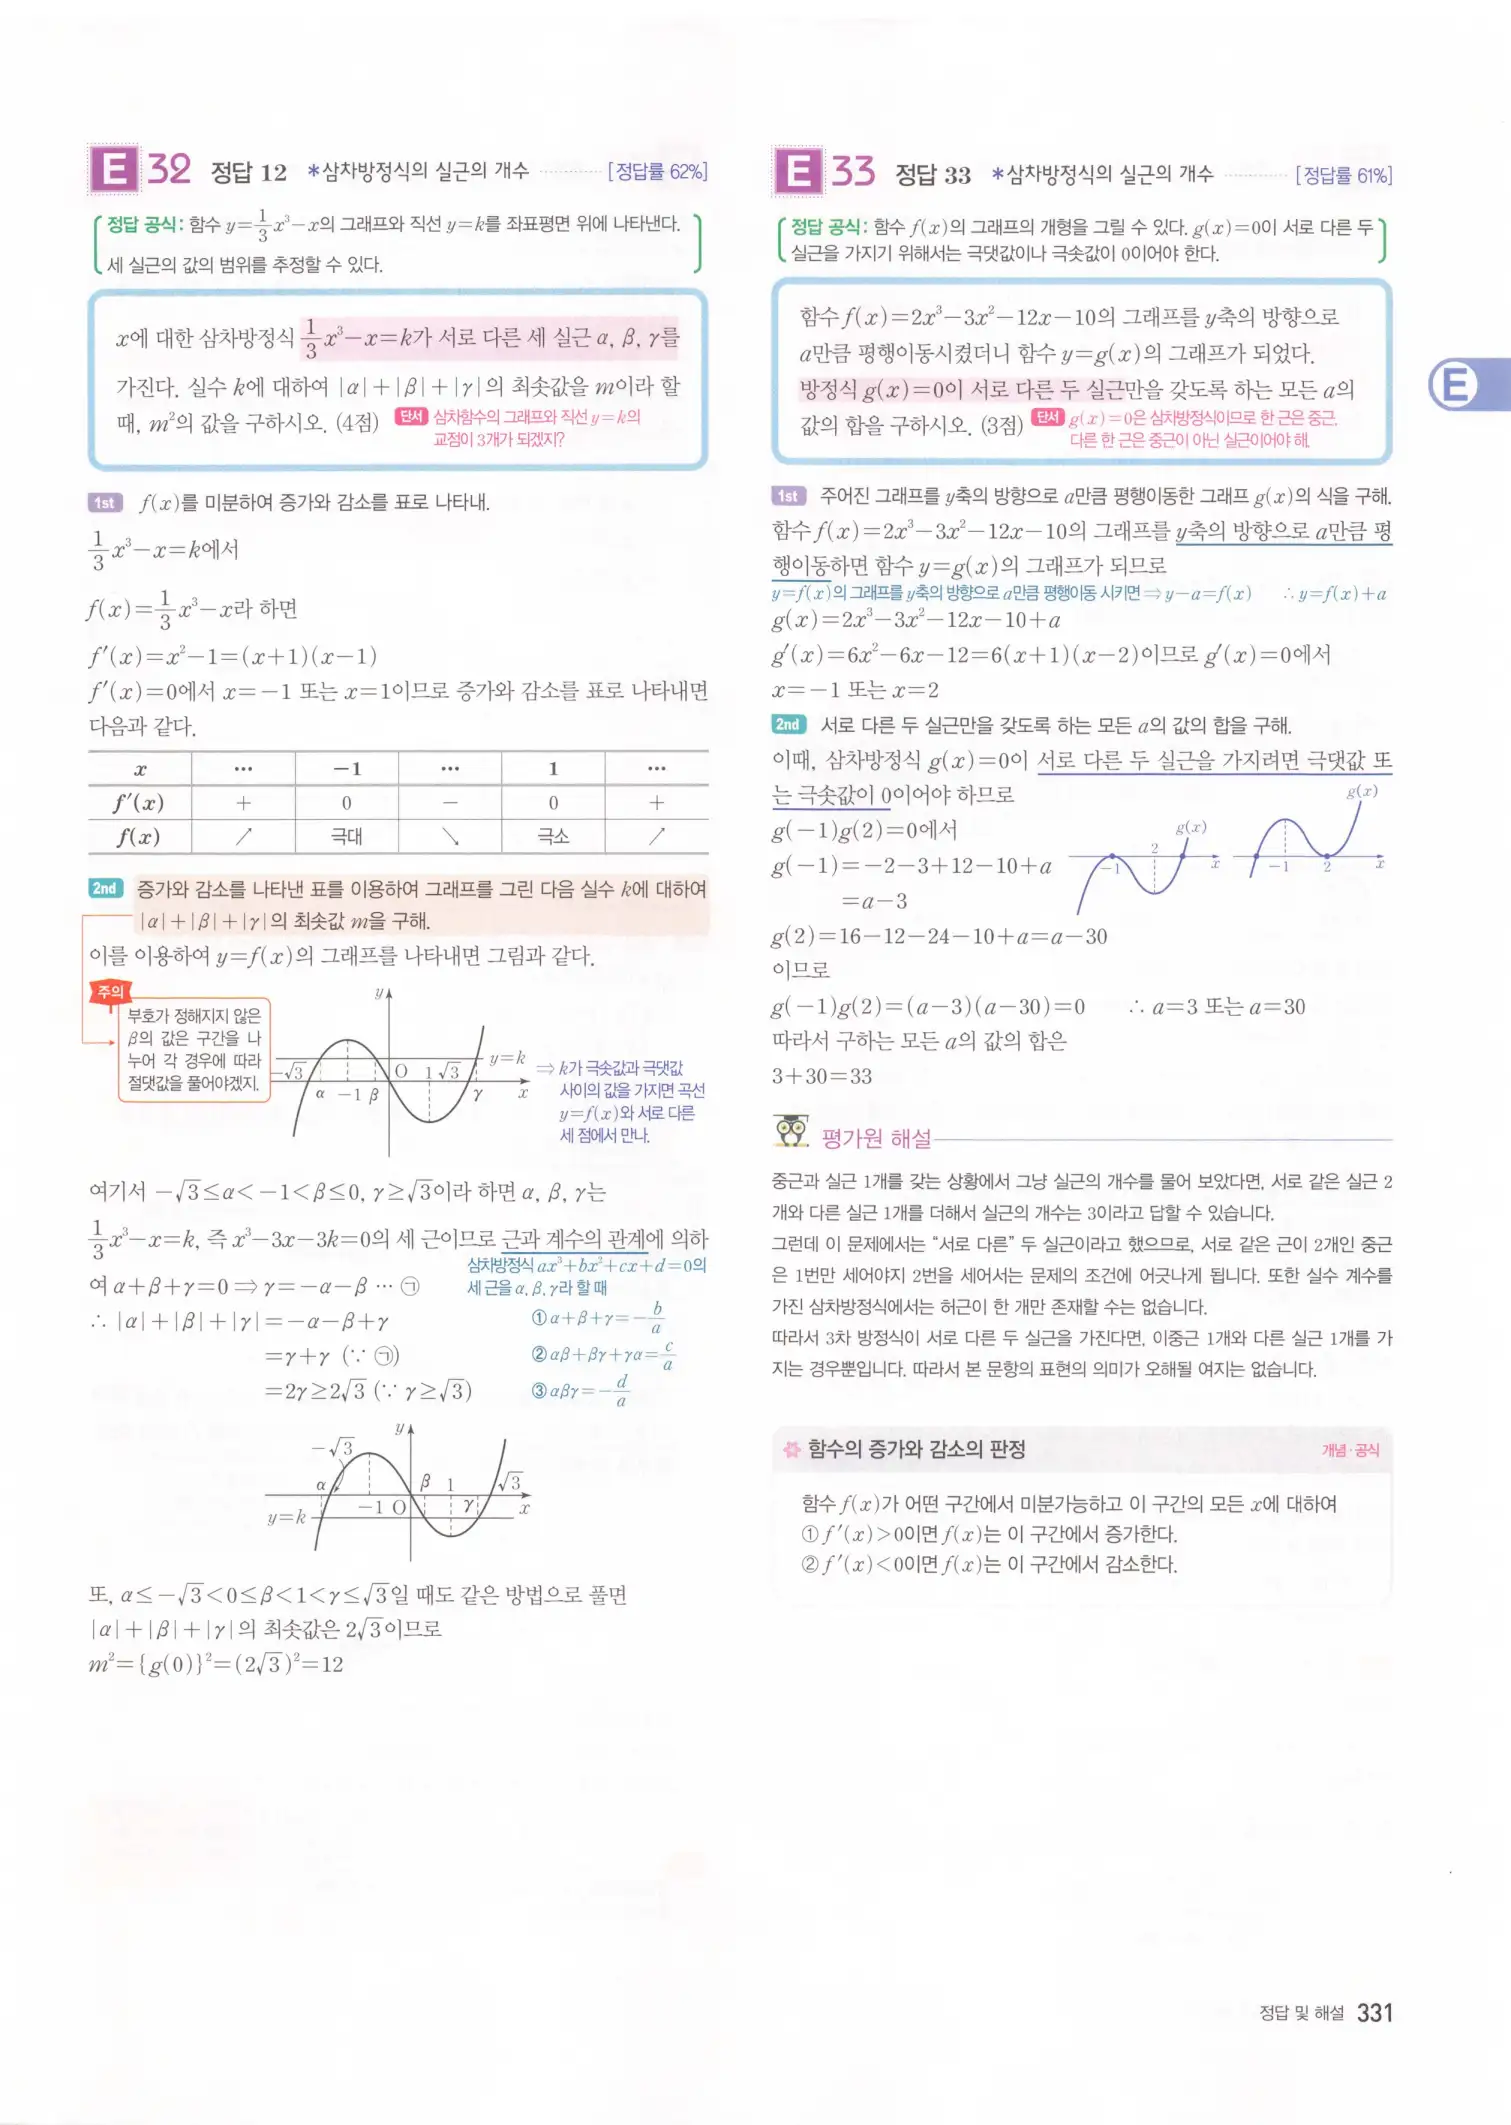 E 32 정답 12 *삼차방정식의 실근의 개수 [정답률 62%]
정답 공식: 함수 y=1/3x³-x의 그래프와 직선 y=k를 좌표평면 위에 나타낸다.
세 실근의 값의 범위를 추정할 수 있다.
x에 대한 삼차방정식 1/3x³-x=k가 서로 다른 세 실근 α, β, γ를
가진다. 실수 k에 대하여 |α|+|β|+|γ|의 최솟값을 m이라 할
때, m²의 값을 구하시오. (4점) 단서 삼차함수의 그래프와 직선 y=k의
교점이 3개가 되겠지?
1st f(x)를 미분하여 증가와 감소를 표로 나타내.
1/3x³-x=k에서
f(x)=1/3x³-x라 하면
f'(x)=x²-1=(x+1)(x-1)
f'(x)=0에서 x=-1 또는 x=1이므로 증가와 감소를 표로 나타내면
다음과 같다.
x … -1 … 1 …
f'(x) + 0 - 0 +
f(x) ↗ 극대 ↘ 극소 ↗
2nd 증가와 감소를 나타낸 표를 이용하여 그래프를 그린 다음 실수 k에 대하여
|α|+|β|+|γ|의 최솟값 m을 구해.
이를 이용하여 y=f(x)의 그래프를 나타내면 그림과 같다.
주의
부호가 정해지지 않은
β의 값은 구간을 나
누어 각 경우에 따라
절댓값을 풀어야겠지.
y
y=k
-√3 O 1 √3
α -1 β γ x
⇒ k가 극솟값과 극댓값
사이의 값을 가지면 곡선
y=f(x)와 서로 다른
세 점에서 만나.
여기서 -√3≤α<-1<β≤0, γ≥√3이라 하면 α, β, γ는
1/3x³-x=k, 즉 x³-3x-3k=0의 세 근이므로 근과 계수의 관계에 의하
여 α+β+γ=0 ⇒ γ=-α-β … ㉠
삼차방정식 ax³+bx²+cx+d=0의
세 근을 α, β, γ라 할 때
① α+β+γ=-b/a
② αβ+βγ+γα=c/a
③ αβγ=-d/a
∴ |α|+|β|+|γ|=-α-β+γ
=γ+γ (∵ ㉠)
=2γ≥2√3 (∵ γ≥√3)
y
-√3
α β 1 √3
-1 O γ x
y=k
또, α≤-√3<0≤β<1<γ≤√3일 때도 같은 방법으로 풀면
|α|+|β|+|γ|의 최솟값은 2√3이므로
m²={g(0)}²=(2√3)²=12
E 33 정답 33 *삼차방정식의 실근의 개수 [정답률 61%]
정답 공식: 함수 f(x)의 그래프의 개형을 그릴 수 있다. g(x)=0이 서로 다른 두
실근을 가지기 위해서는 극댓값이나 극솟값이 0이어야 한다.
함수 f(x)=2x³-3x²-12x-10의 그래프를 y축의 방향으로
a만큼 평행이동시켰더니 함수 y=g(x)의 그래프가 되었다.
방정식 g(x)=0이 서로 다른 두 실근만을 갖도록 하는 모든 a의
값의 합을 구하시오. (3점) 단서 g(x)=0은 삼차방정식이므로 한 근은 중근,
다른 한 근은 중근이 아닌 실근이어야 해.
1st 주어진 그래프를 y축의 방향으로 a만큼 평행이동한 그래프 g(x)의 식을 구해.
함수 f(x)=2x³-3x²-12x-10의 그래프를 y축의 방향으로 a만큼 평
행이동하면 함수 y=g(x)의 그래프가 되므로
y=f(x)의 그래프를 y축의 방향으로 a만큼 평행이동 시키면 ⇒ y-a=f(x) ∴ y=f(x)+a
g(x)=2x³-3x²-12x-10+a
g'(x)=6x²-6x-12=6(x+1)(x-2)이므로 g'(x)=0에서
x=-1 또는 x=2
2nd 서로 다른 두 실근만을 갖도록 하는 모든 a의 값의 합을 구해.
이때, 삼차방정식 g(x)=0이 서로 다른 두 실근을 가지려면 극댓값 또
는 극솟값이 0이어야 하므로
g(-1)g(2)=0에서
g(-1)=-2-3+12-10+a
=a-3
g(x)
-1 2 x
g(x)
-1 2 x
g(2)=16-12-24-10+a=a-30
이므로
g(-1)g(2)=(a-3)(a-30)=0 ∴ a=3 또는 a=30
따라서 구하는 모든 a의 값의 합은
3+30=33
평가원 해설
중근과 실근 1개를 갖는 상황에서 그냥 실근의 개수를 물어 보았다면, 서로 같은 실근 2
개와 다른 실근 1개를 더해서 실근의 개수는 3이라고 답할 수 있습니다.
그런데 이 문제에서는 “서로 다른” 두 실근이라고 했으므로, 서로 같은 근이 2개인 중근
은 1번만 세어야지 2번을 세어서는 문제의 조건에 어긋나게 됩니다. 또한 실수 계수를
가진 삼차방정식에서는 허근이 한 개만 존재할 수는 없습니다.
따라서 3차 방정식이 서로 다른 두 실근을 가진다면, 이중근 1개와 다른 실근 1개를 가
지는 경우뿐입니다. 따라서 본 문항의 표현의 의미가 오해될 여지는 없습니다.
함수의 증가와 감소의 판정 개념·공식
함수 f(x)가 어떤 구간에서 미분가능하고 이 구간의 모든 x에 대하여
① f'(x)>0이면 f(x)는 이 구간에서 증가한다.
② f'(x)<0이면 f(x)는 이 구간에서 감소한다.
E
정답 및 해설 331